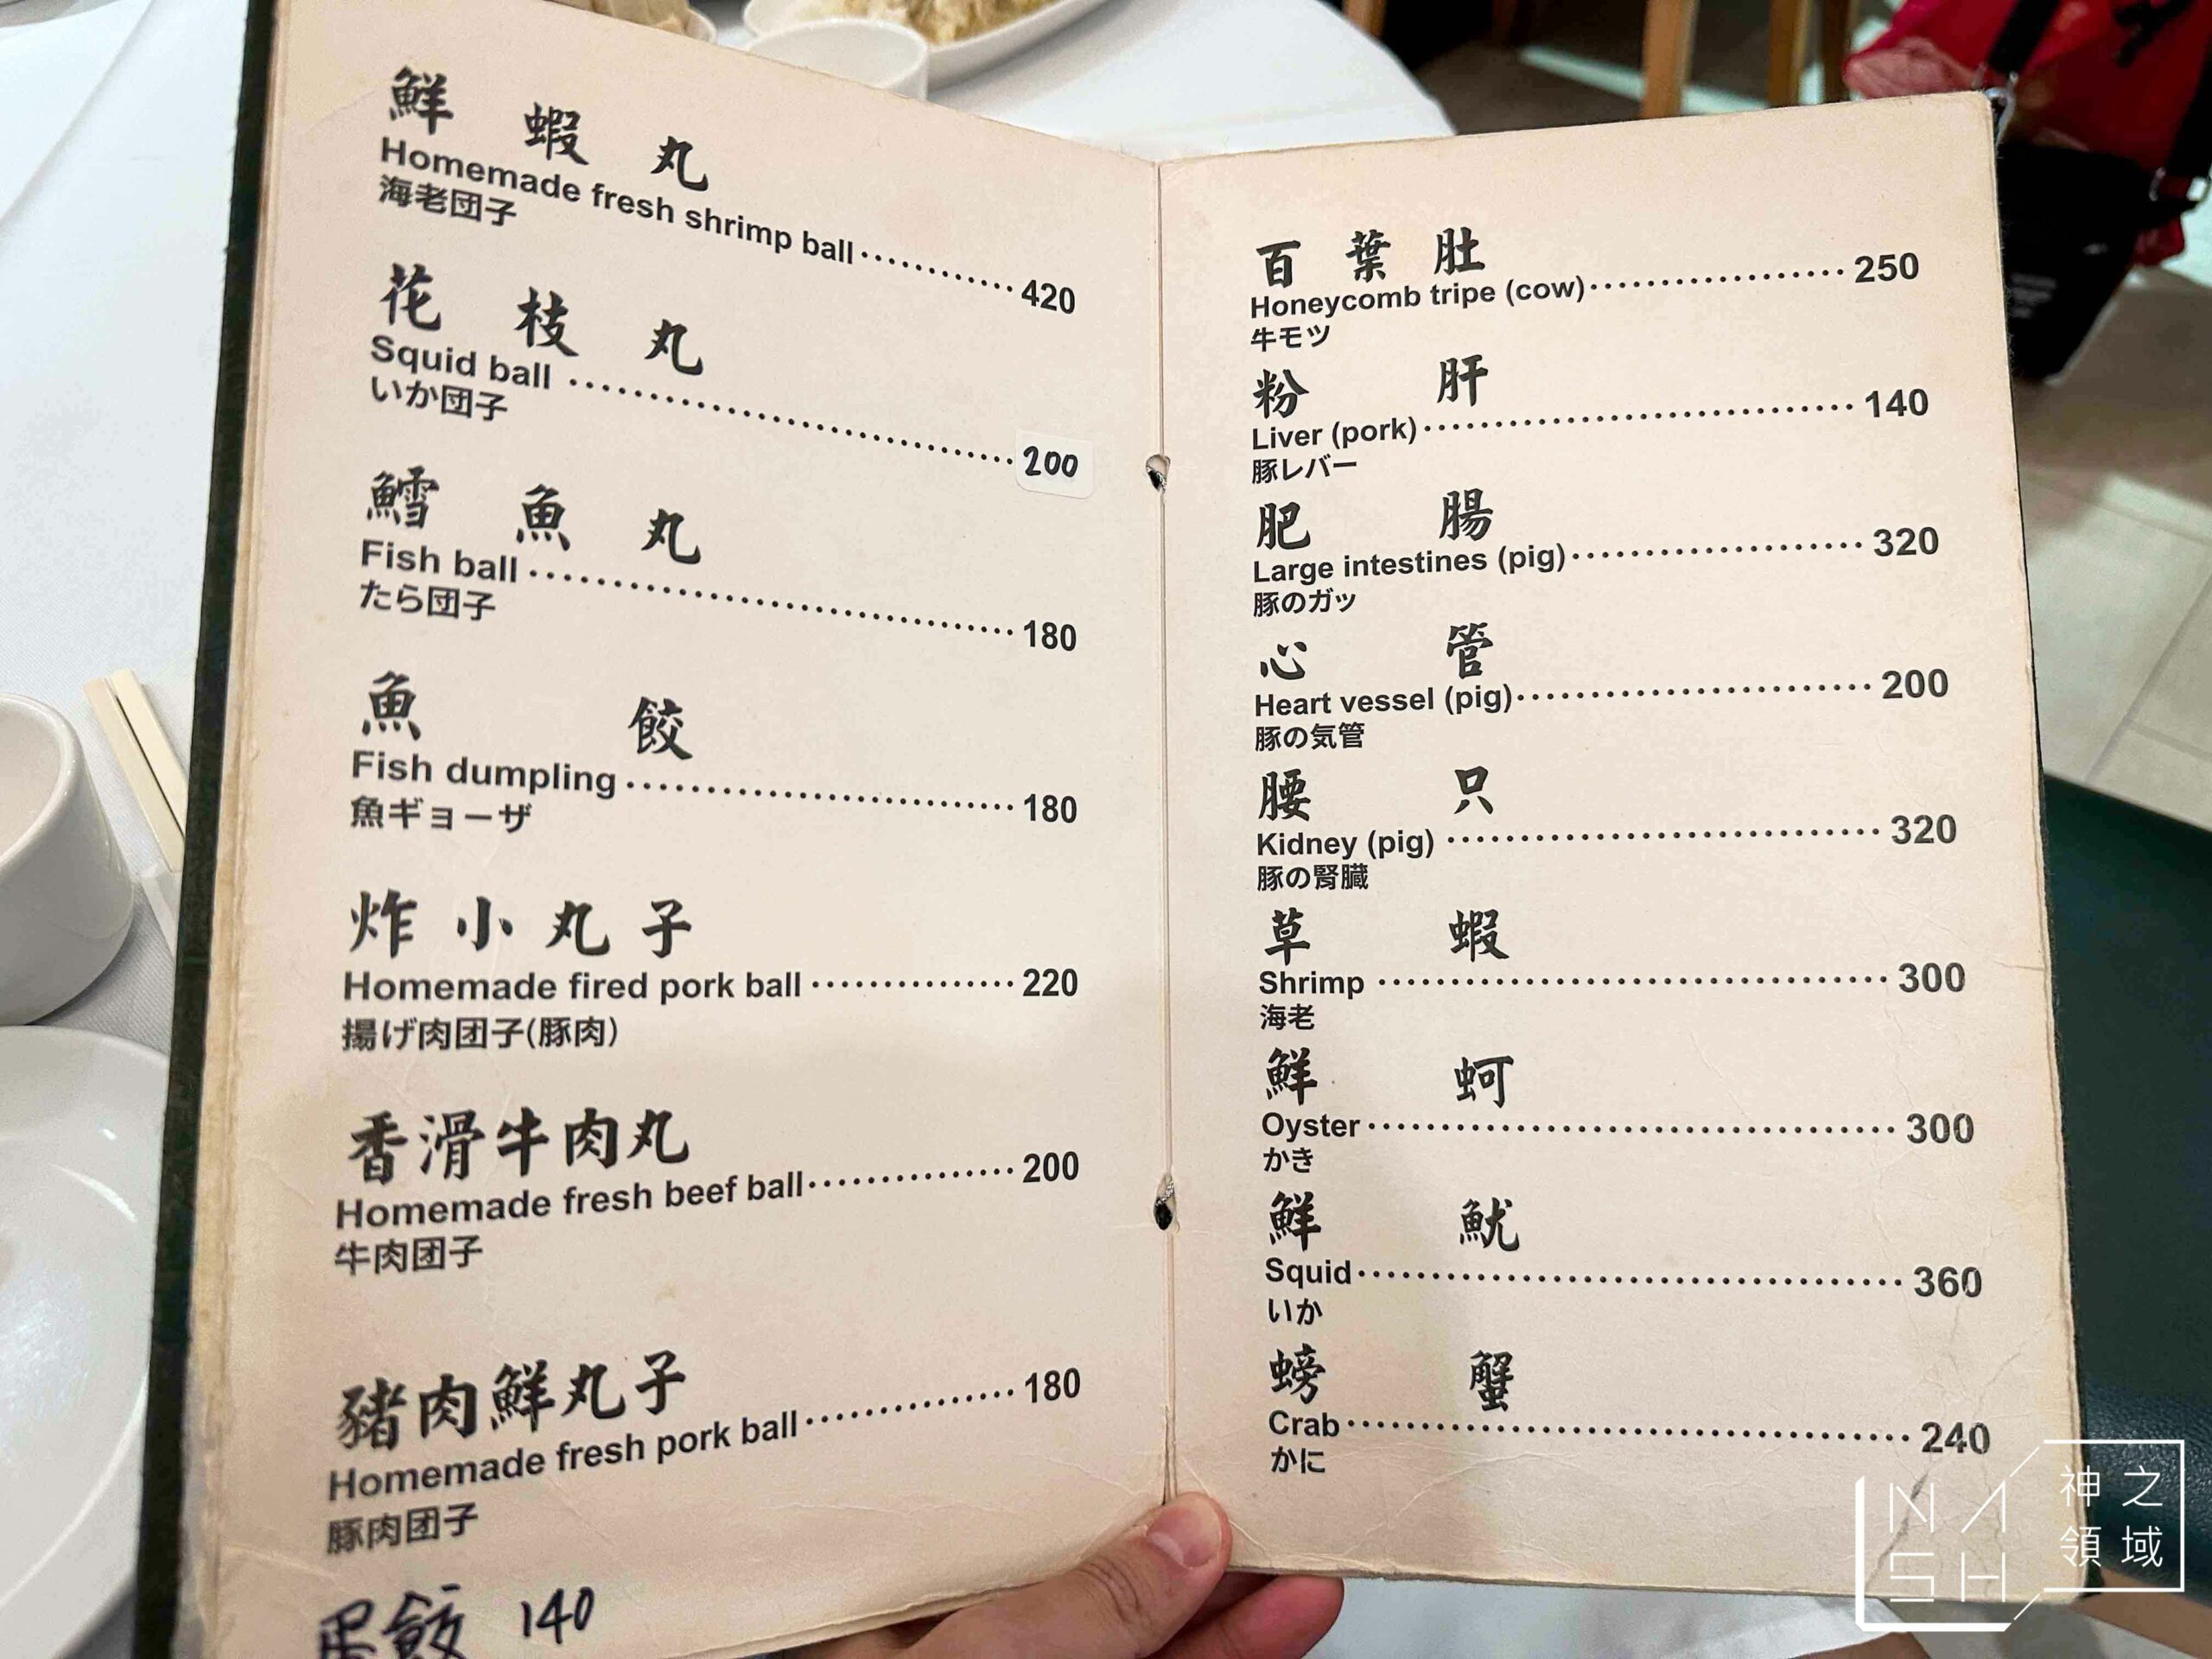 鮮蝦丸
Homemade fresh shrimp ball 420
海老団子
花枝丸
Squid ball 200
いか団子
鱈魚丸
Fish ball 180
たら団子
魚餃
Fish dumpling 180
魚ギョーザ
炸小丸子
Homemade fired pork ball 220
揚げ肉団子(豚肉)
香滑牛肉丸
Homemade fresh beef ball 200
牛肉団子
豬肉鮮丸子
Homemade fresh pork ball 180
豚肉団子
蛋餃 140
百葉肚
Honeycomb tripe (cow) 250
牛モツ
粉肝
Liver (pork) 140
豚レバー
肥腸
Large intestines (pig) 320
豚のガッ
心管
Heart vessel (pig) 200
豚の気管
腰只
Kidney (pig) 320
豚の腎臓
草蝦
Shrimp 300
海老
鮮蚵
Oyster 300
かき
鮮魷
Squid 360
いか
螃蟹
Crab 240
かに
NASH
神之領域